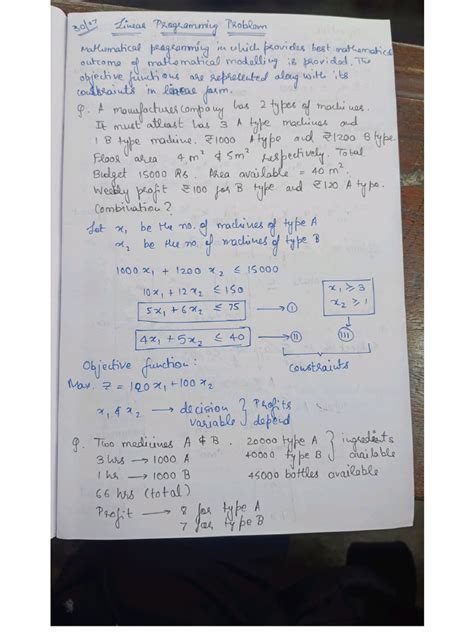 30/07 Linear Programming Problem
Mathematical programming in which provides best mathematical
outcome of mathematical modelling is provided. The
objective functions are represented along with its
constraints in linear form.
Q. A manufactures company has 2 types of machines.
It must atleast has 3 A type machines and
1 B type machine. ₹1000 A type and ₹1200 B type.
Floor area 4 m² & 5m² respectively. Total
Budget 15000 Rs. Area available = 40 m².
Weekly profit ₹100 for B type and ₹120 A type.
Combination?
Let x₁ be the no. of machines of type A
x₂ be the no. of machines of type B
1000 x₁ + 1200 x₂ ≤ 15000
10x₁ + 12 x₂ ≤ 150
5x₁ + 6x₂ ≤ 75 → I
x₁ ≥ 3
x₂ ≥ 1
4x₁ + 5x₂ ≤ 40 → II
III
constraints
Objective function:
Max. Z = 120 x₁ + 100 x₂
x₁ & x₂ → decision variable } Profits depend
Q. Two medicines A & B. 20000 type A
40000 type B } ingredients available
3 hrs → 1000 A
1 hr → 1000 B
45000 bottles available
66 hrs (total)
Profit → 8 for type A
7 for type B